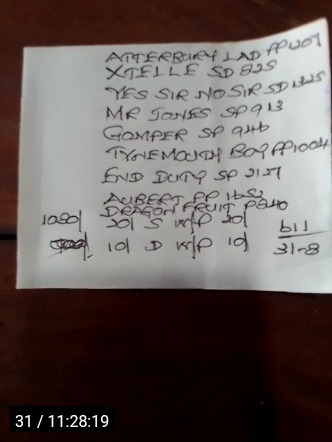 ATTERBURY LAD PP1207
XTELLE SD 825
YES SIR NO SIR SD 1325
MR JONES SP 913
GOMPER SP 946
TYNEMOUTH BOY PP1004
END DUTY SP 2127
AUBERT PP 1652
DRAGON FRUIT P240
1080/ 20/ S W/P 20/ b11
10/ D W/P 10/ 31-8
31 / 11:28:19